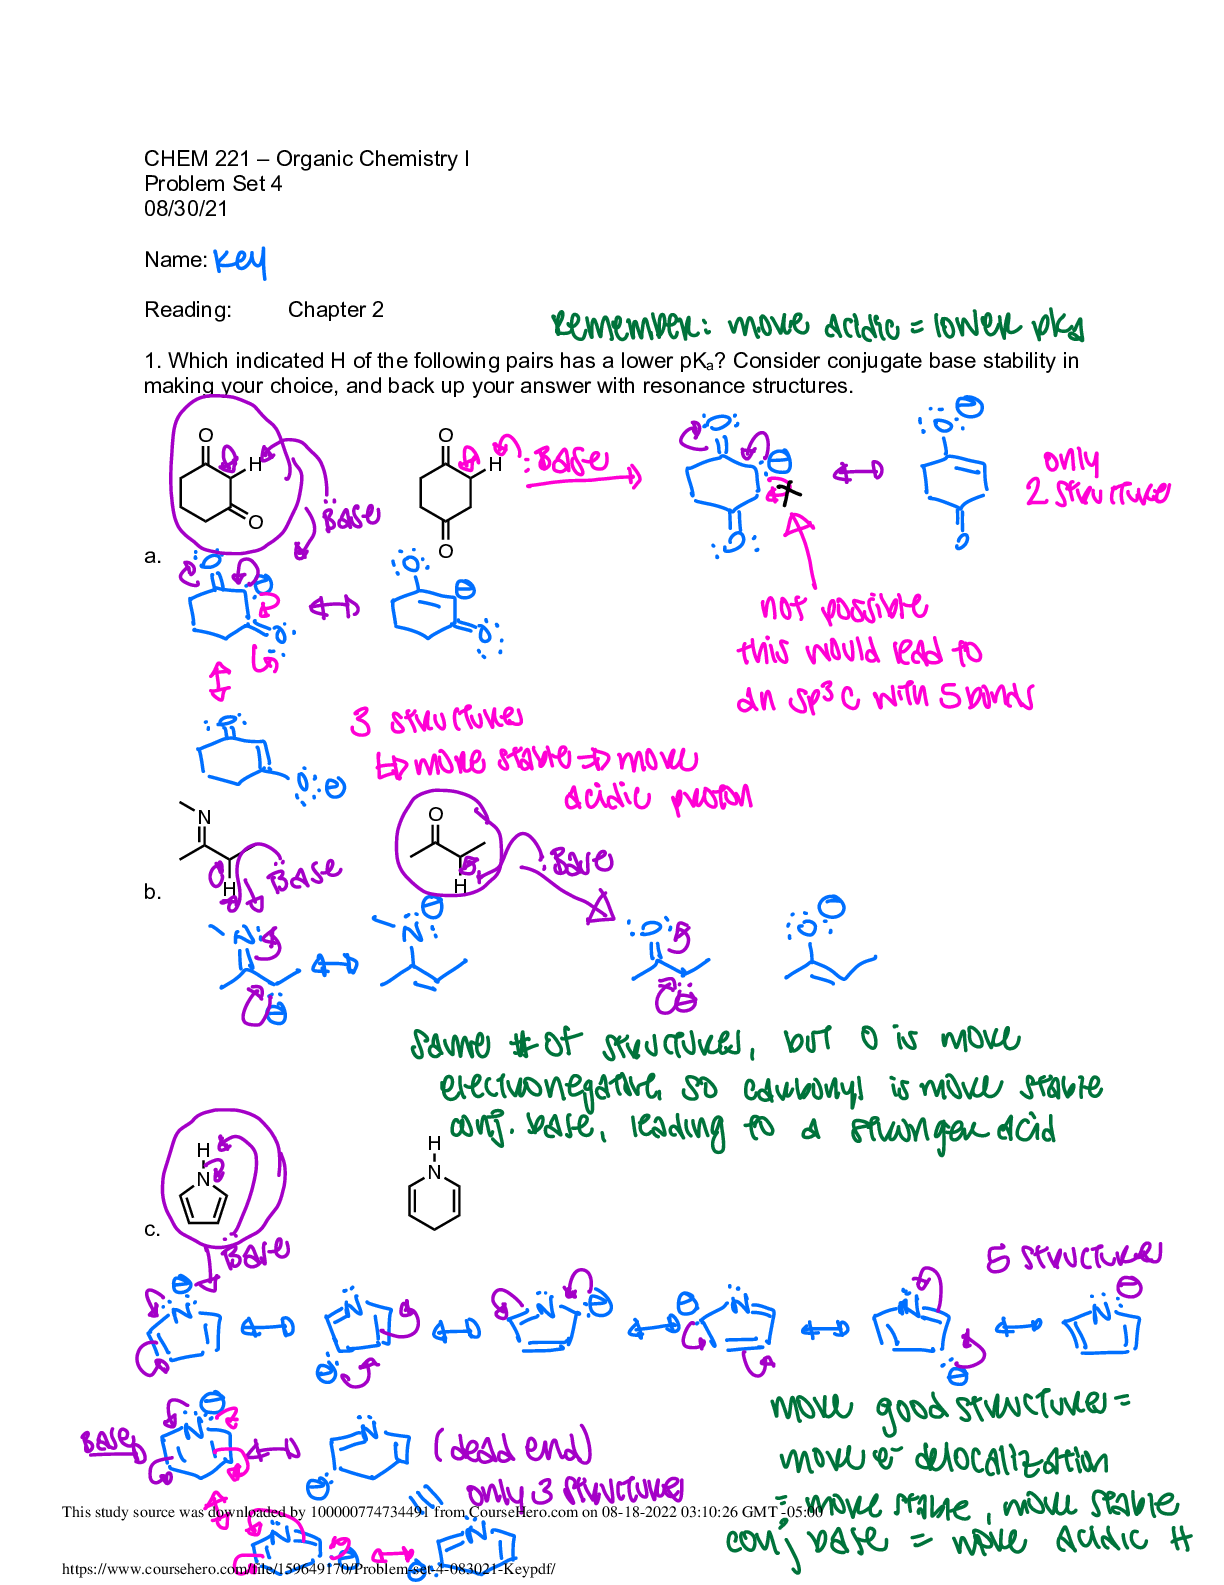 CHEM 221 – Organic Chemistry I
Problem Set 4
08/30/21
Name: Key
Reading: Chapter 2
Remember: more acidic = lower pKa
1. Which indicated H of the following pairs has a lower pKa? Consider conjugate base stability in
making your choice, and back up your answer with resonance structures.
O H O H :Base
O Base O
only
2 structure
a.
not possible
this would lead to
an sp3 C with 5 bonds
3 structures
↳ more stable ⇒ more
acidic proton
N O
H Base H :Base
b.
same # of structures, but O is more
electronegative, so carbonyl is more stable
conj. base, leading to a stronger acid
H H
N N
c.
Base
5 structures
N N N N N N
more good structures =
Base N N (dead end)
more e- delocalization
only 3 structures
This study source was downloaded by 100000774734491 from CourseHero.com on 08-18-2022 03:10:26 GMT -05:00
= more stable, more stable
conj base = more acidic H
N N
https://www.coursehero.com/file/159649170/Problem-set-4-083021-Keypdf/